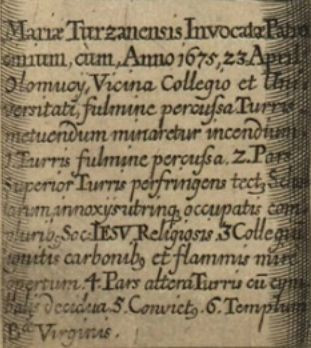 Mariæ Turzanensis Invocatæ Patro
cinium, cùm, Anno 1675, 23 April
Olomucÿ, Vicina Collegio et Uni
versitati, fulmine percussa Turris
metuendum minaretur incendium.
1. Turris fulmine percussa. 2. Pars
Superior Turris perfringens tectꝫ
innoxÿs utrinqꝫ occupatis com
pluribꝫ Soc: IESV Religiosis. 3 Collegiū
ignitis carbonibꝫ et flammis mire
opertum. 4. Pars altera Turris cū cym
balis decidua. 5. Convictꝫ. 6. Templum
B.ᵃᵉ Virginis.